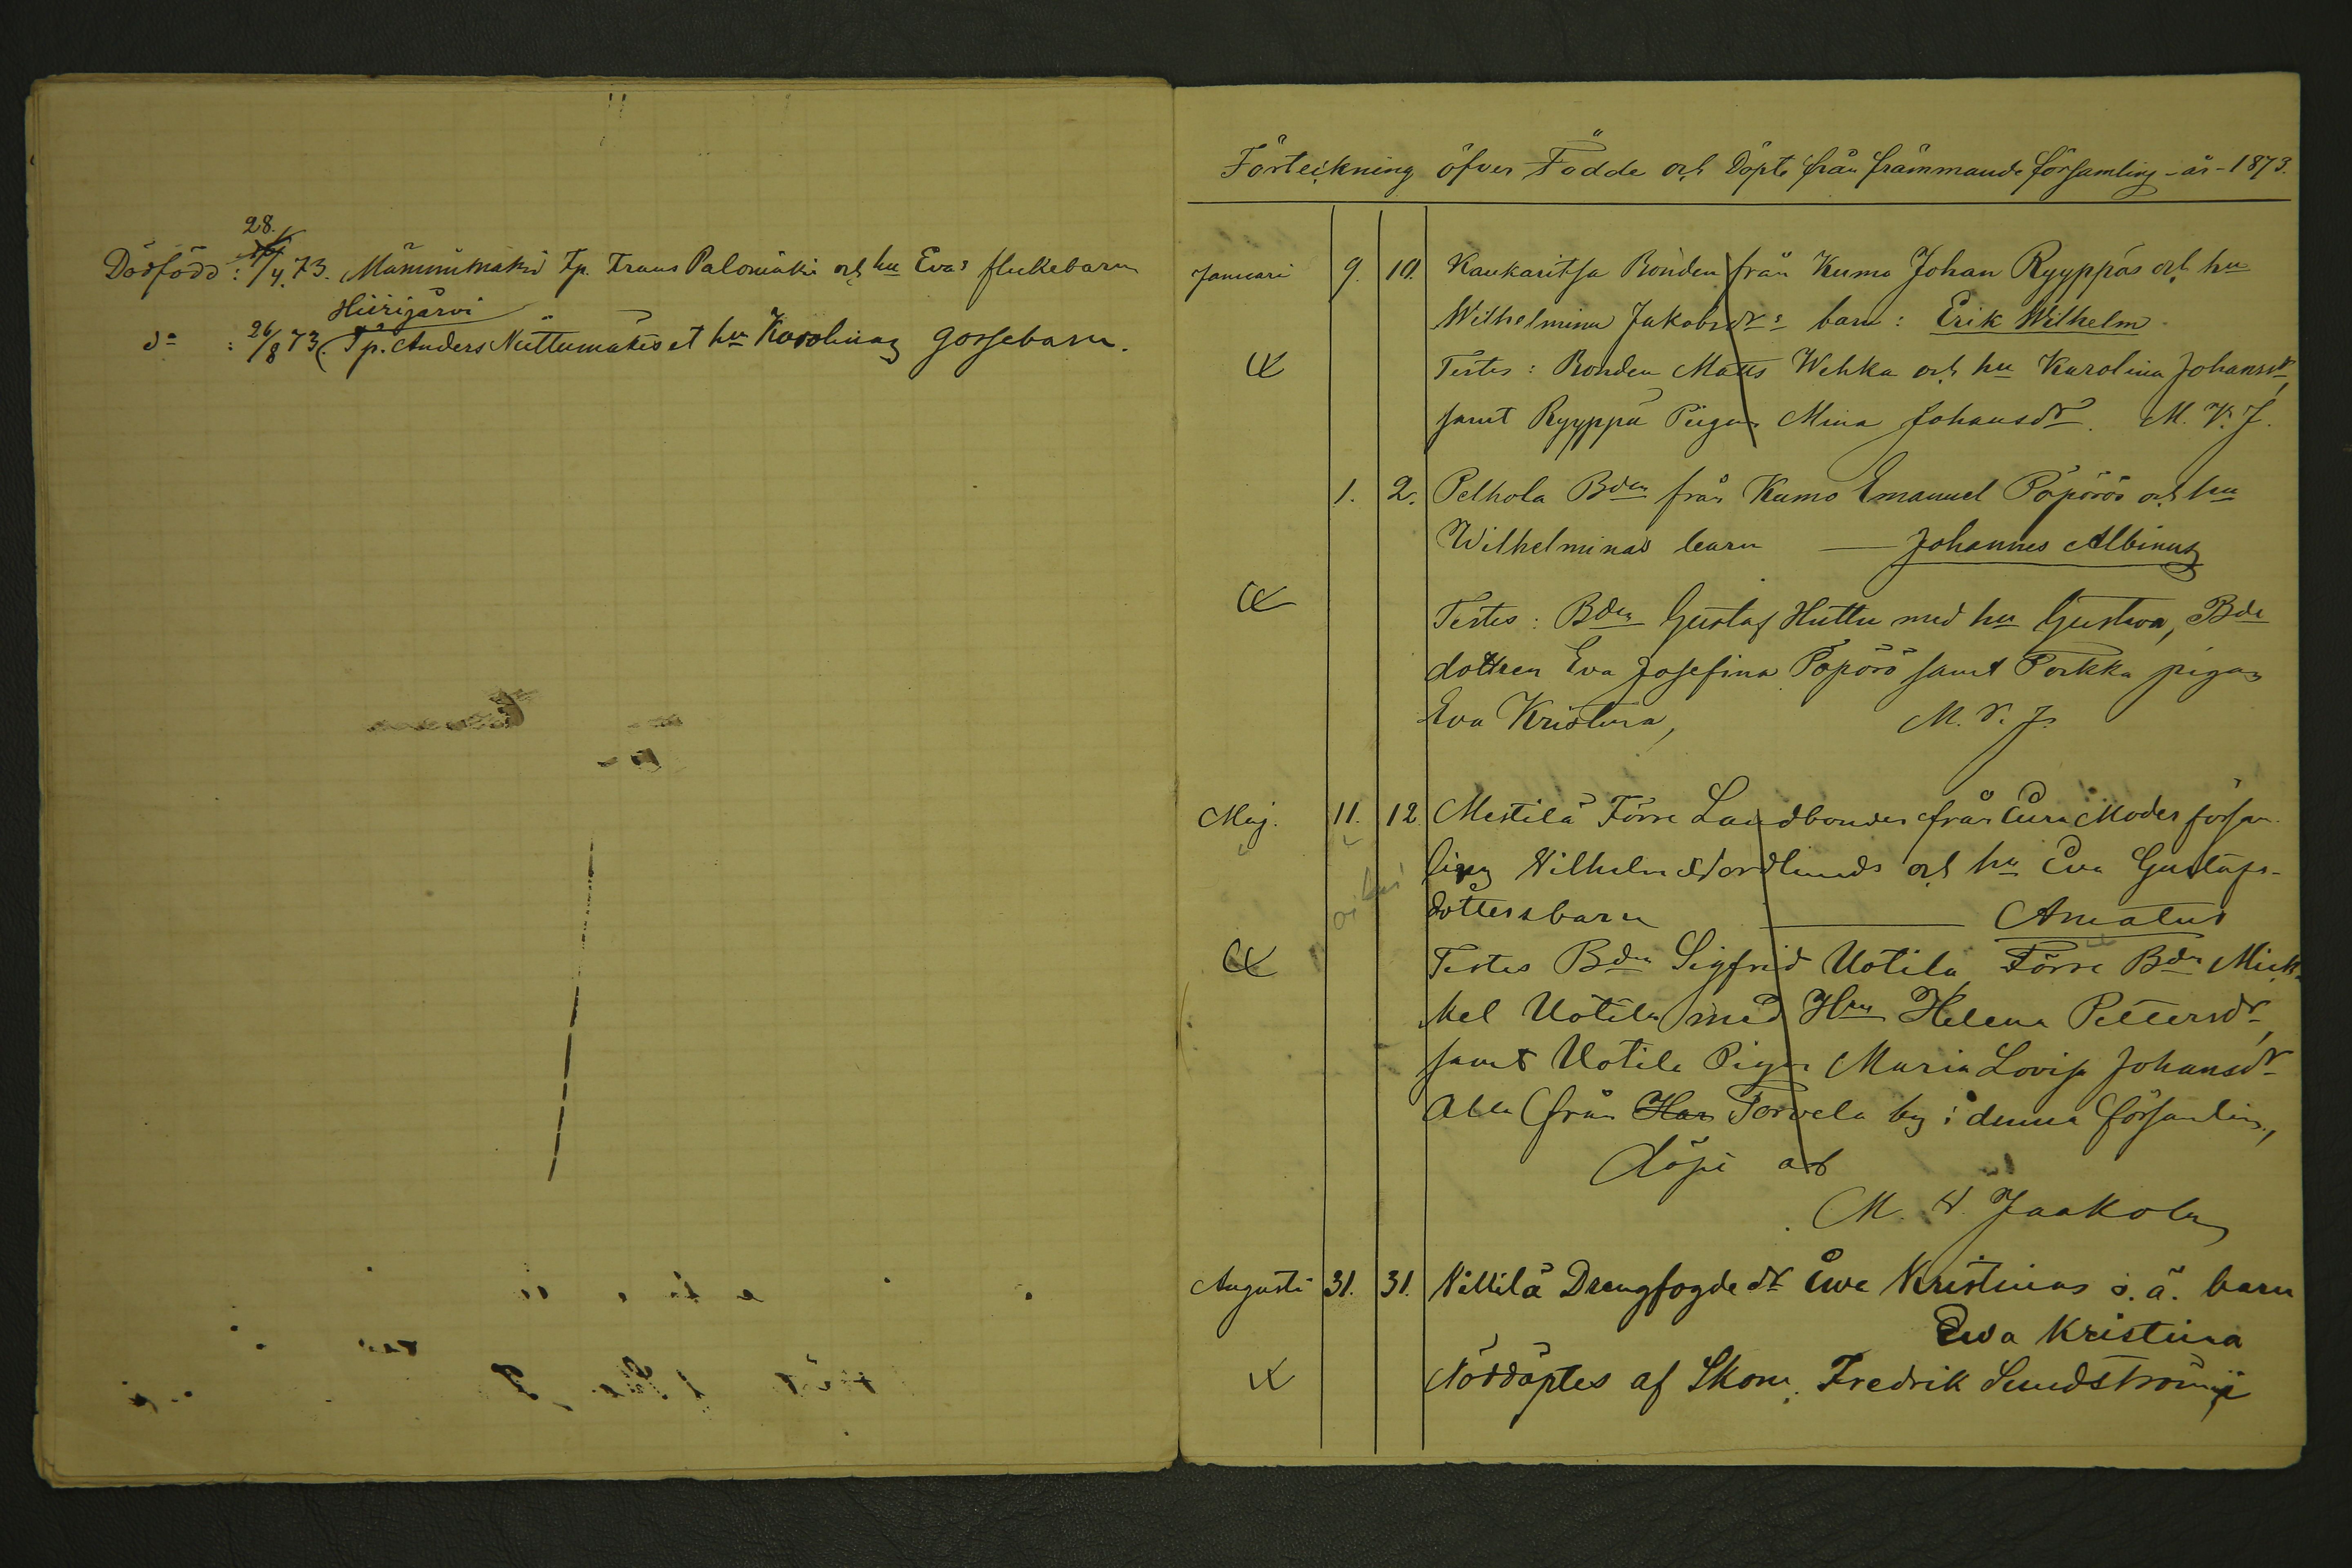 28.
Dödfödd: /4.73. Männimäki Tp. Frans Palomäki och hu Evas flickebarn
Hiirijärvi
do : 26/8 73. Tp. Anders Niittumäkis et hu Karolinas gossebarn.
Förteckning öfver Födde och Döpte från främmande församling - år - 1873.
Januari 9. 10. Kaukaritsa Bonden från Kumo Johan Ryyppäs och hu
Wilhelmina Jakobsdrs barn: Erik Wilhelm.
Testes: Bonden Matts Wehka och hu Karolina Johansdr,
samt Ryyppä Pigan Mina Johansdr. M. V. J.
1. 2. Pelhola Bden från Kumo Emanuel Pöpörös och hu
Wilhelminas barn — Johannes Albinus
Testes: Bden Gustaf Huttu med hu Gustava, Bde
dottren Eva Josefina Pöpörö samt Porkka pigan
Eva Kristina, M. V. J.
Maj. 11. 12. Mestilä Förre Landbonden från Eura Moder försam-
ling Wilhelm Nordlunds och hu Eva Gustafs-
dotters barn — Amatus
Testes Bden Sigfrid Uotila, Förre Bden Mick-
kel Uotila med Hru Helena Pettersdr,
samt Uotila Pigan Maria Lovisa Johansdr
Alla från Har Torvela by i denna församling,
döpt af
M. V. Jaakola
Augusti 31. 31. Villilä Drengfogde dr Ewa Kristinas o. ä. barn
Ewa Kristina
Nöddöptes af Skom. Fredrik Sundström